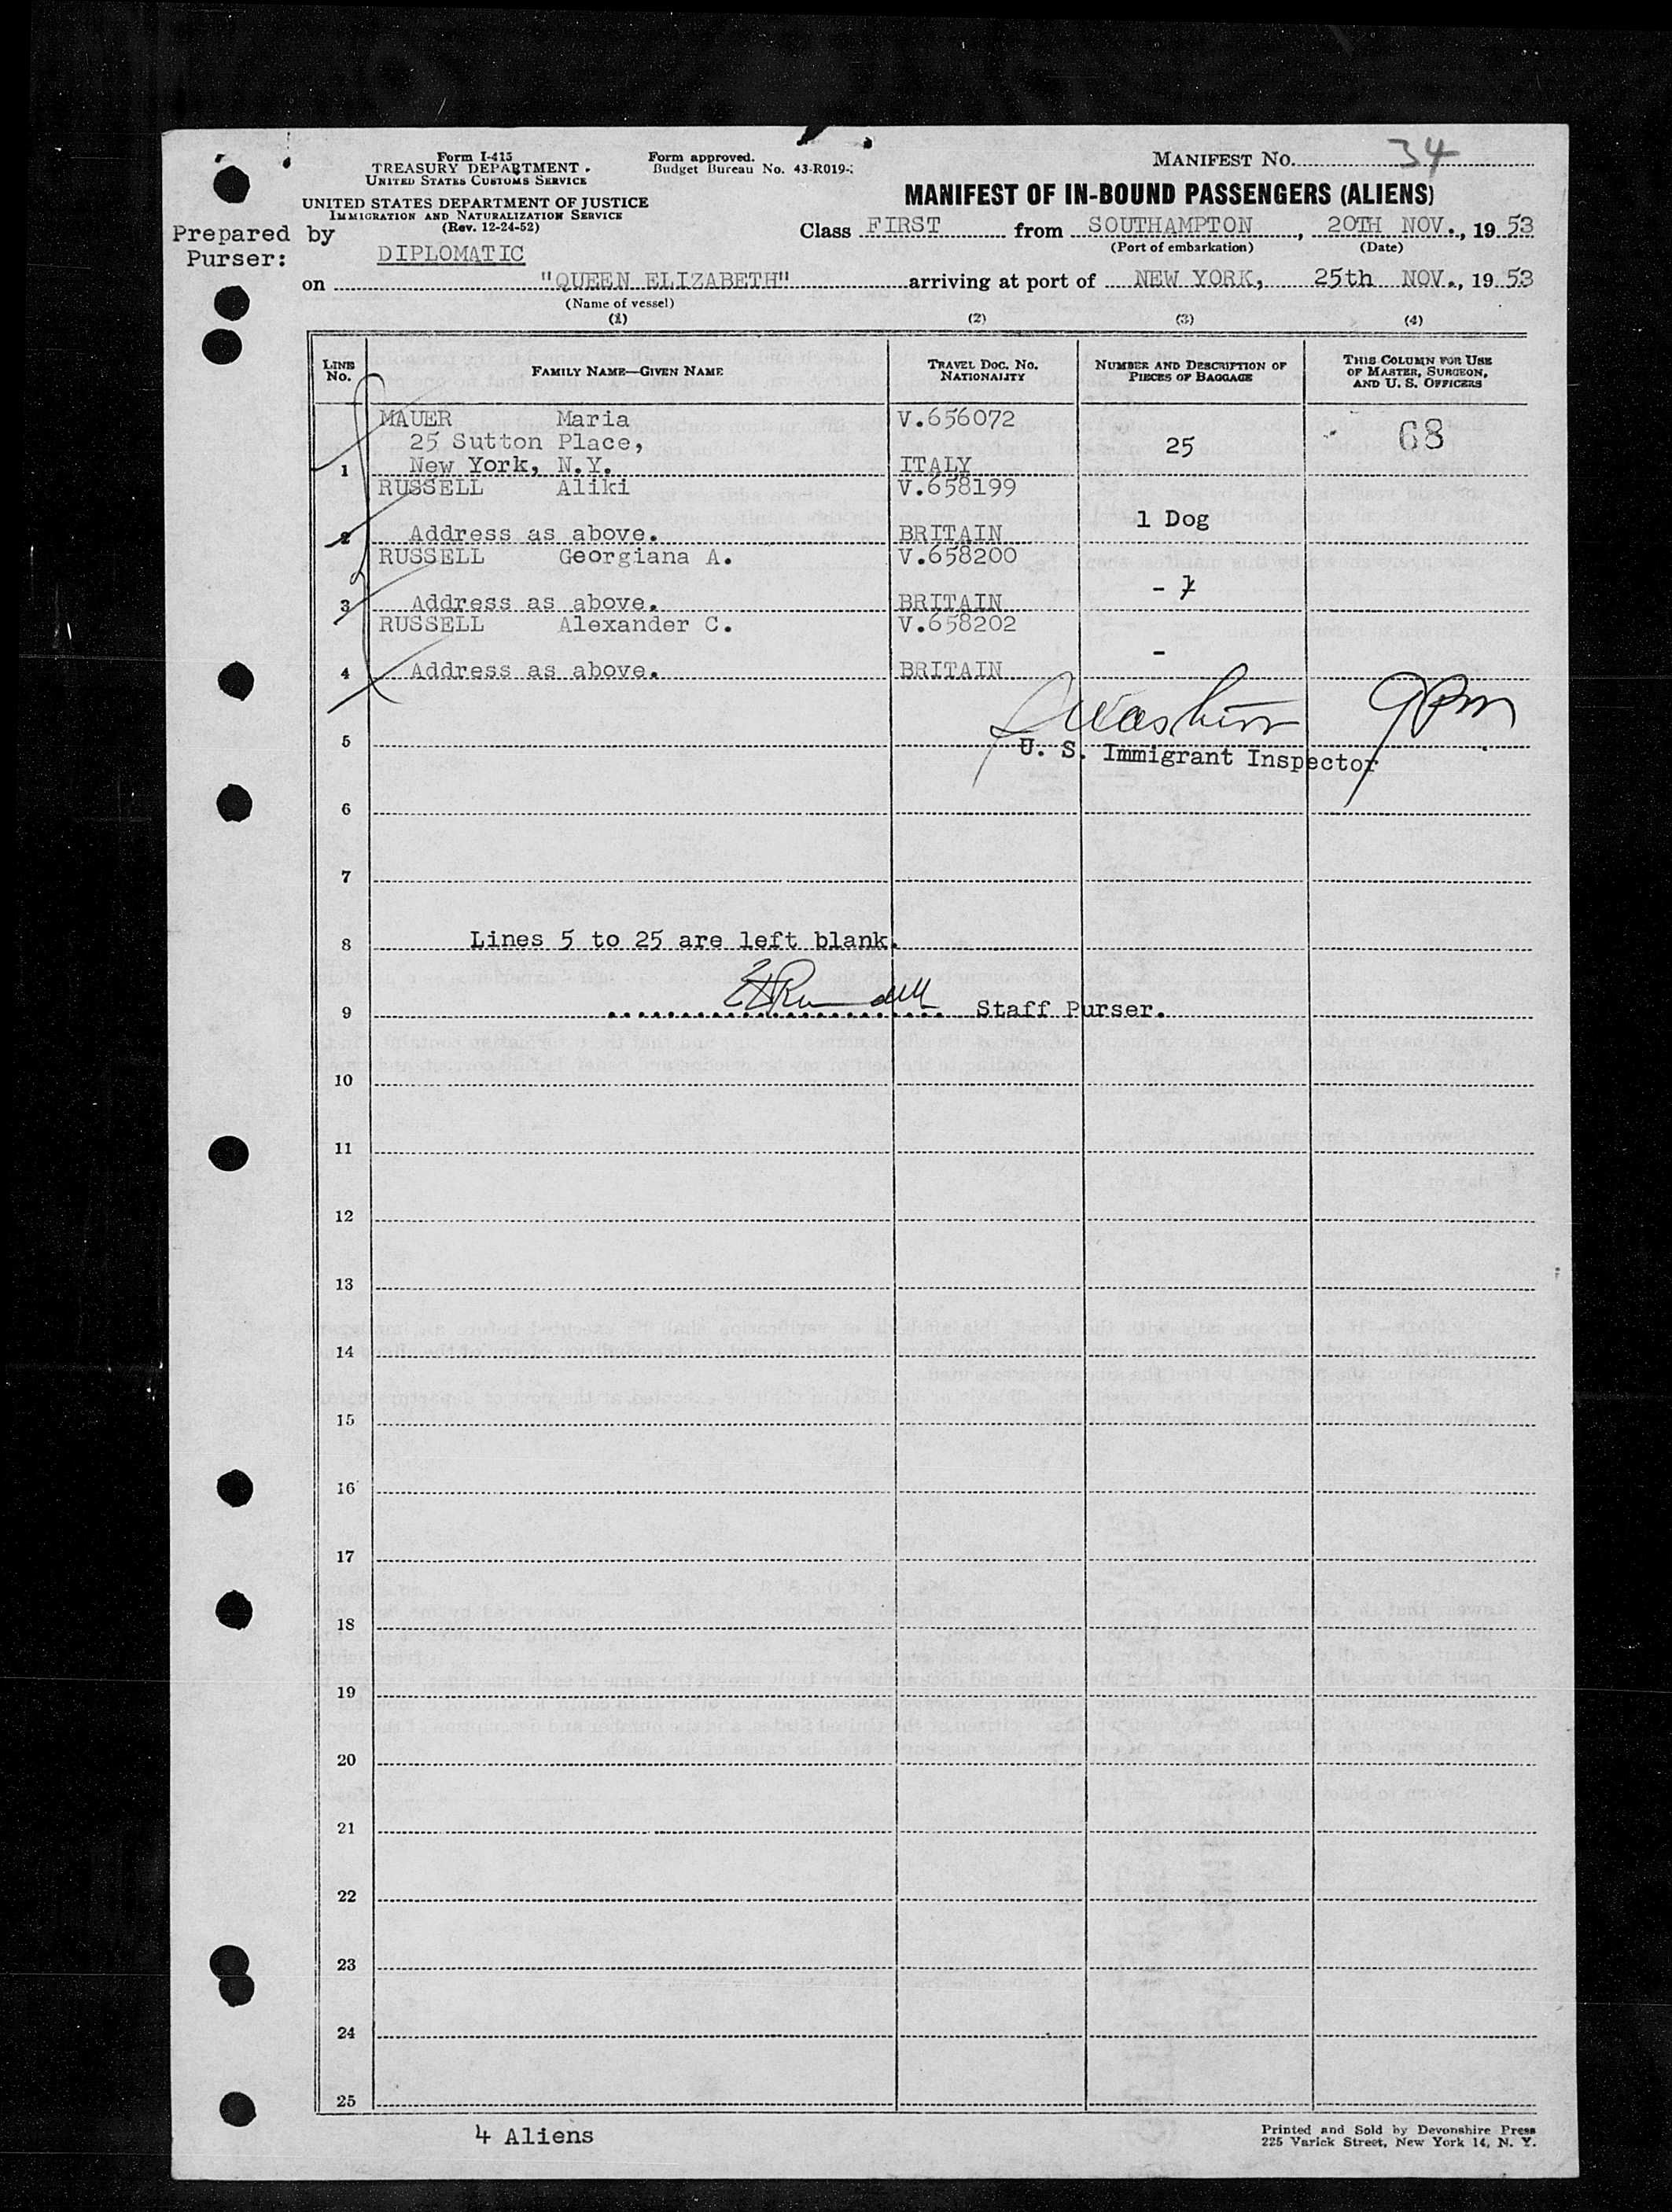 Form I-415
TREASURY DEPARTMENT
UNITED STATES CUSTOMS SERVICE
UNITED STATES DEPARTMENT OF JUSTICE
IMMIGRATION AND NATURALIZATION SERVICE
(Rev. 12-24-52)
Form approved.
Budget Bureau No. 43-R019-
MANIFEST No. 34
MANIFEST OF IN-BOUND PASSENGERS (ALIENS)
Prepared by
Purser:
DIPLOMATIC
Class FIRST from SOUTHAMPTON, 20TH NOV., 19 53
(Port of embarkation) (Date)
on "QUEEN ELIZABETH" arriving at port of NEW YORK, 25th NOV., 19 53
(Name of vessel)
(1) (2) (3) (4)
LINE No. FAMILY NAME—GIVEN NAME TRAVEL DOC. NO. NATIONALITY NUMBER AND DESCRIPTION OF PIECES OF BAGGAGE THIS COLUMN FOR USE OF MASTER, SURGEON, AND U. S. OFFICERS
MAUER Maria V.656072
25 Sutton Place, 25 68
1 New York, N.Y. ITALY
RUSSELL Aliki V.658199
1 Dog
2 Address as above. BRITAIN
RUSSELL Georgiana A. V.658200
-
3 Address as above. BRITAIN
RUSSELL Alexander C. V.658202
-
4 Address as above. BRITAIN
5 U. S. Immigrant Inspector
6
7
8 Lines 5 to 25 are left blank.
9 Staff Purser.
10
11
12
13
14
15
16
17
18
19
20
21
22
23
24
25
4 Aliens
Printed and Sold by Devonshire Press
225 Varick Street, New York 14, N. Y.